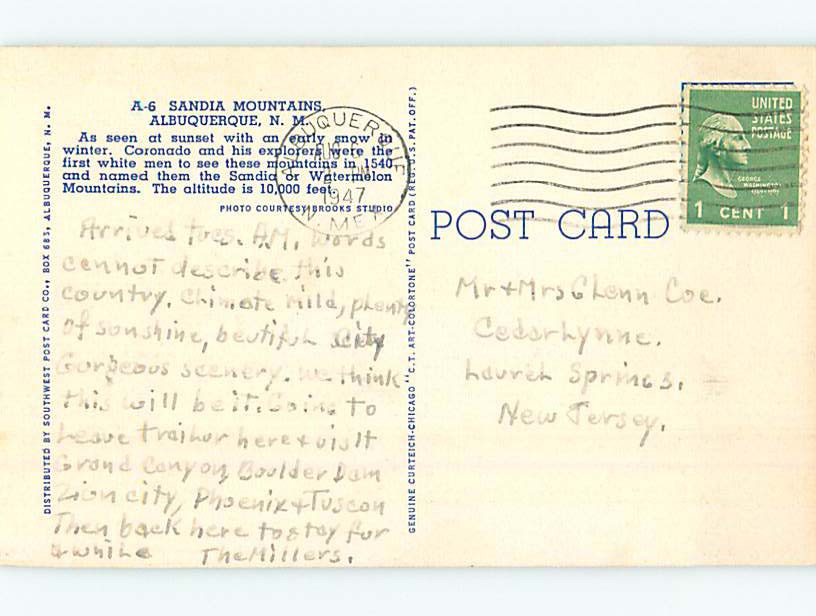 A-6 SANDIA MOUNTAINS,
ALBUQUERQUE, N. M.
As seen at sunset with an early snow in
winter. Coronado and his explorers were the
first white men to see these mountains in 1540
and named them the Sandia or Watermelon
Mountains. The altitude is 10,000 feet.
PHOTO COURTESY BROOKS STUDIO
DISTRIBUTED BY SOUTHWEST POST CARD CO., BOX 685, ALBUQUERQUE, N. M.
Arrived Tues. A.M. Words
cannot describe this
country. Climate mild, plenty
of sonshine, beutiful City
Gorgeous scenery. We think
this will be it. Going to
Leave trailur here + visit
Grand Canyon, Boulder Dam
Zion city, Phoenix + Tuscon
Then back here to stay for
awhile The Millers.
GENUINE CURTEICH-CHICAGO "C.T. ART-COLORTONE" POST CARD (REG. U.S. PAT. OFF.)
ALBUQUERQUE
AUG
1947
N. MEX.
UNITED
STATES
POSTAGE
GEORGE
WASHINGTON
1 CENT 1
POST CARD
Mr + Mrs Glenn Coe.
CedarLynne.
Laurel Springs.
New Jersey.